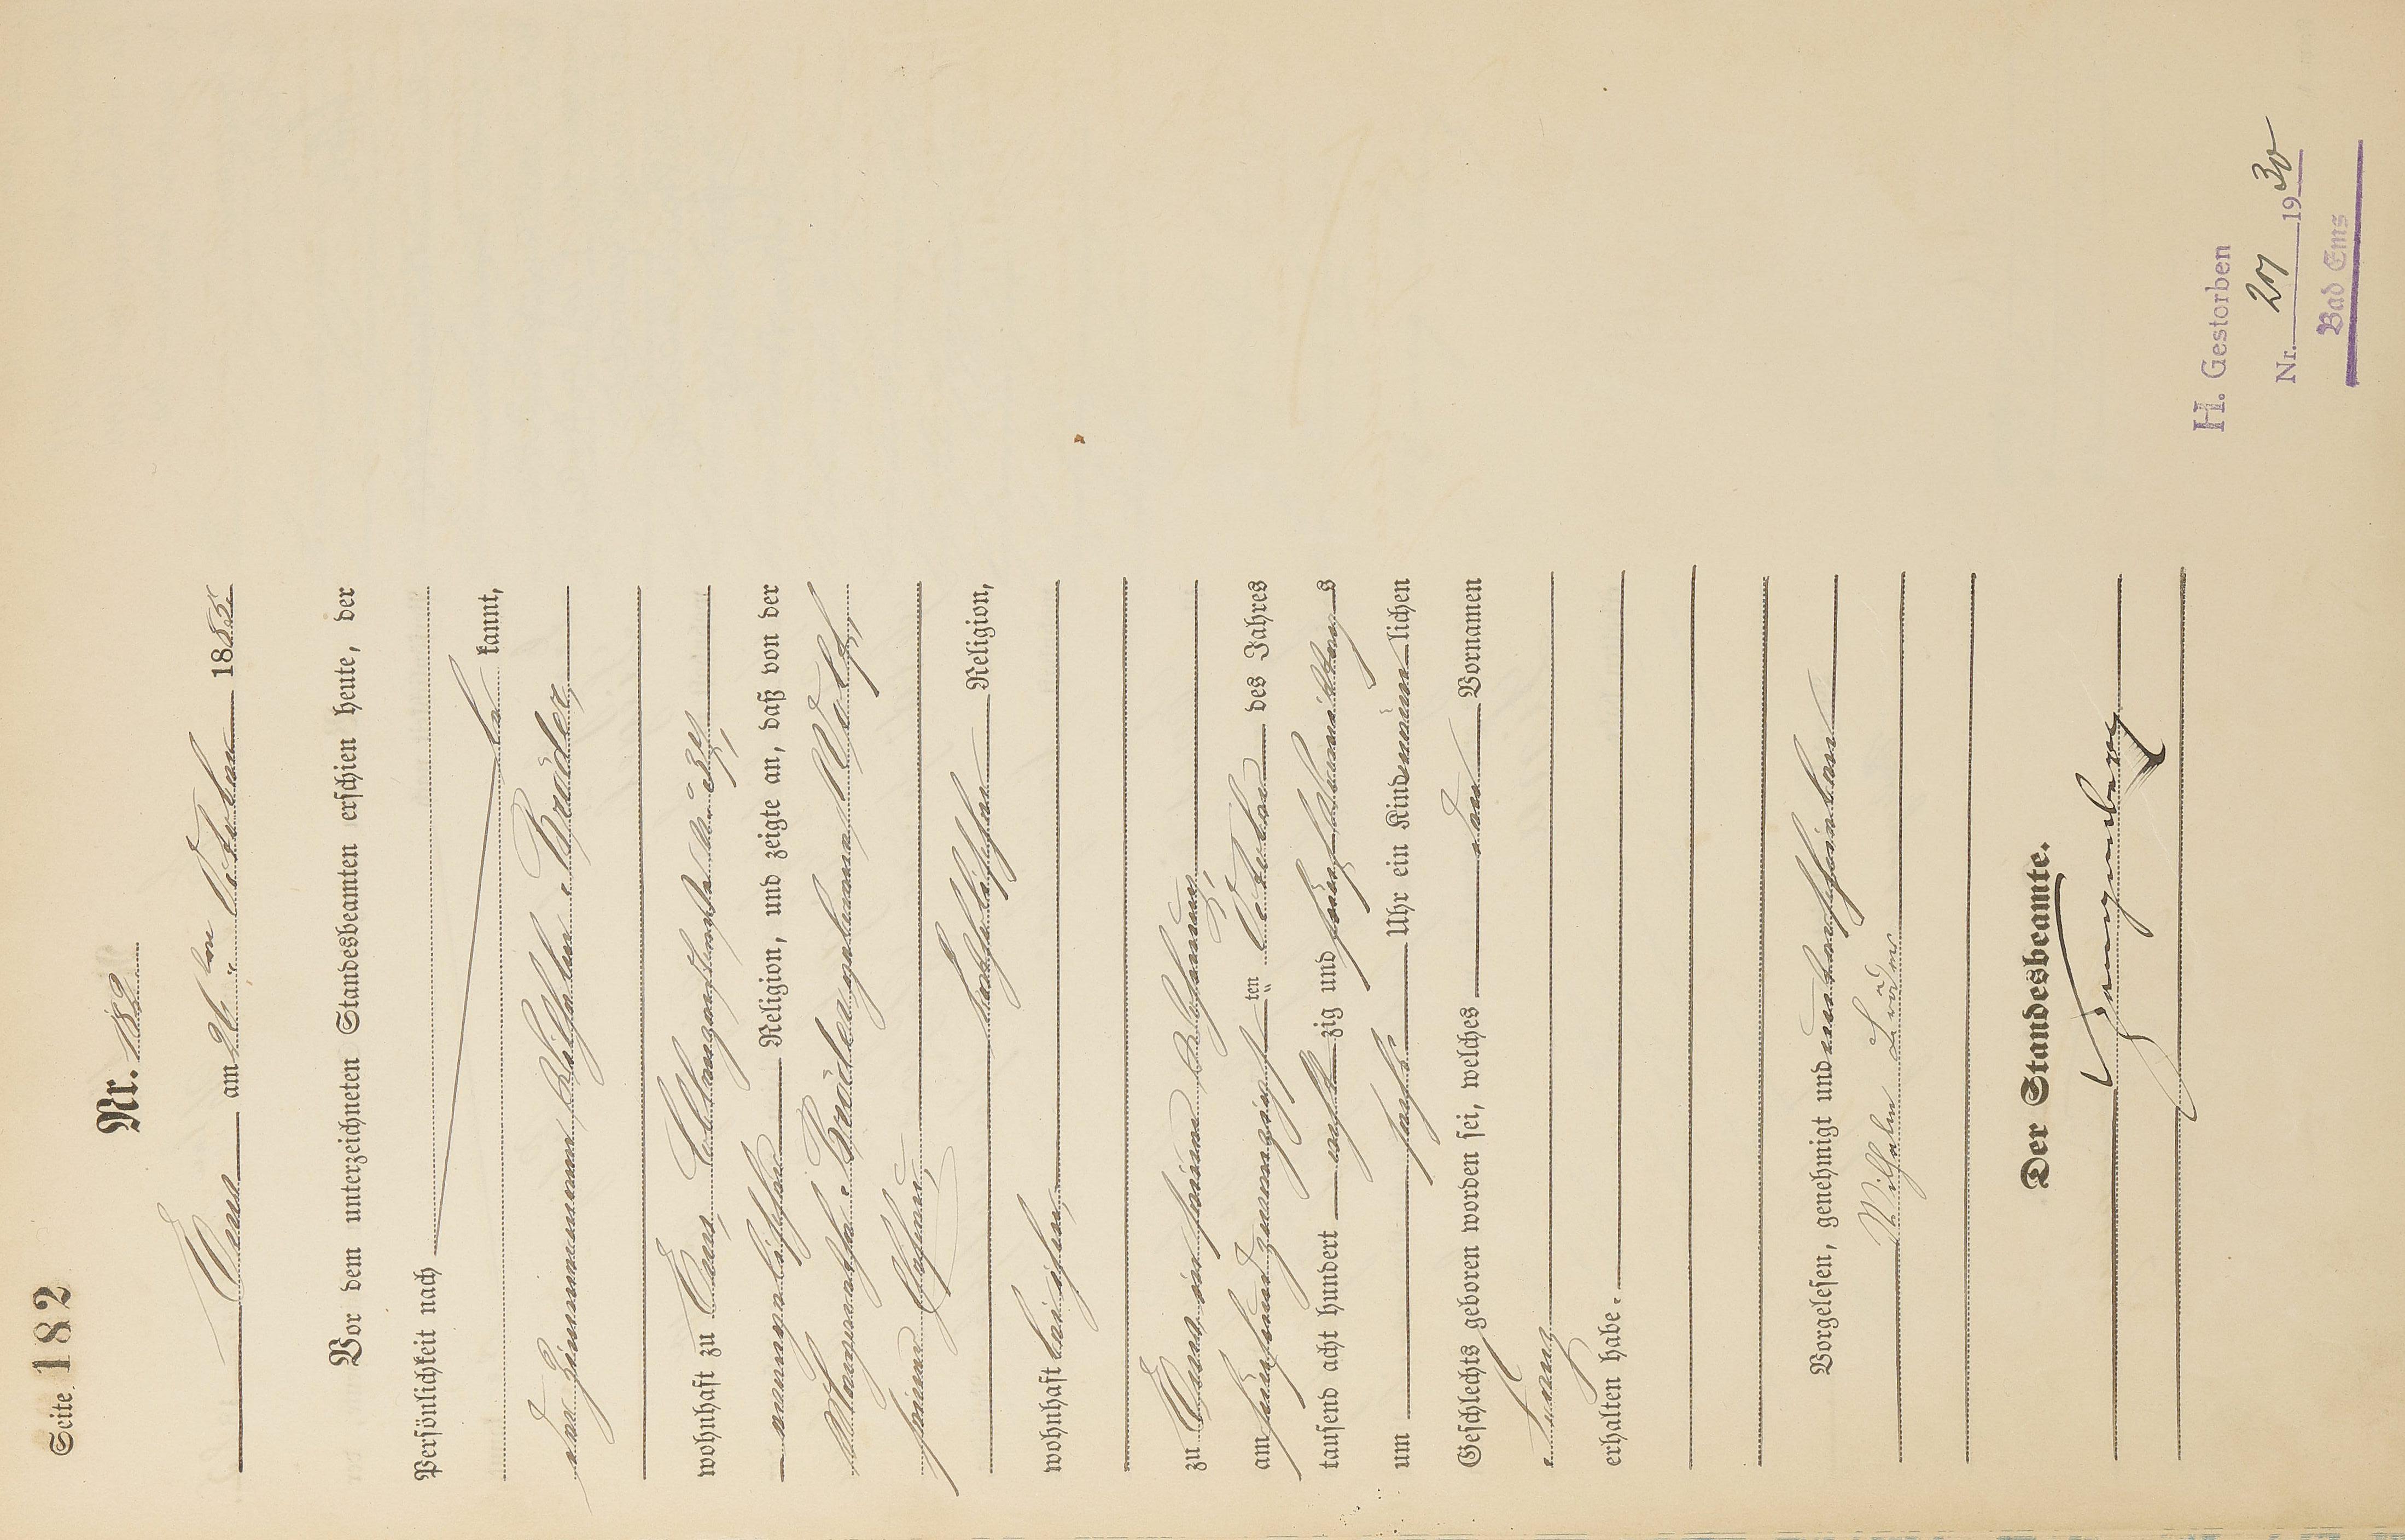 Seite 182
Nr. 182.
Ems am 26ten Oktober 1885.
Vor dem unterzeichneten Standesbeamten erschien heute, der
Persönlichkeit nach
be kannt,
der Zimmermann Wilhelm Bröder,
wohnhaft zu Ems,
evangelischer Religion, und zeigte an, daß von der
Margarethe Bröder geborenen Wolf,
seiner Ehefrau,
katholischer Religion,
wohnhaft bei ihm,
zu Ems in seiner Wohnung,
am fünfundzwanzigsten Oktober des Jahres
tausend acht hundert acht zig und fünf Vormittags
um sechs Uhr ein Kind männlichen
Geschlechts geboren worden sei, welches den Vornamen
erhalten habe.
Vorgelesen, genehmigt und unterschrieben
Wilhelm Bröder
Der Standesbeamte.
H. Gestorben
Nr. 1930
Bad Ems